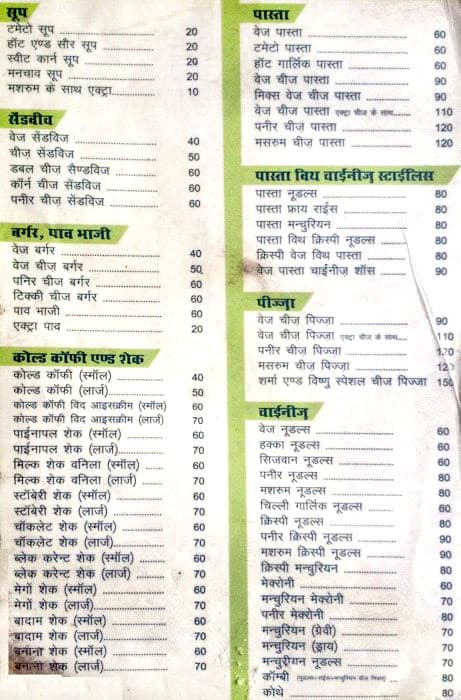 सूप
टमेटो सूप 20
हॉट एण्ड सौर सूप 20
स्वीट कार्न सूप 20
मनचाव सूप 20
मशरुम के साथ एक्ट्रा 10
सेंडवीच
वेज सेंडविज 40
चीज़ सेंडविज 50
डबल चीज़ सैण्डविज 60
कॉर्न चीज सेंडविज 60
पनीर चीज़ सेंडविज 60
बर्गर, पाव भाजी
वेज बर्गर 40
वेज चीज़ बर्गर 50
पनिर चीज़ बर्गर 60
टिक्की चीज़ बर्गर 60
पाव भाजी 60
एक्ट्रा पाव 20
कोल्ड कॉफी एण्ड शेक
कोल्ड कॉफी (स्मॉल) 40
कोल्ड कॉफी (लार्ज) 50
कोल्ड कॉफी विद आइसक्रीम (स्मॉल) 60
कोल्ड कॉफी विद आइसक्रीम (लार्ज) 70
पाईनापल शेक (स्मॉल) 60
पाईनापल शेक (लार्ज) 70
मिल्क शेक वनिला (स्मॉल) 60
मिल्क शेक वनिला (लार्ज) 70
स्टॉबेरी शेक (स्मॉल) 60
स्टॉबेरी शेक (लार्ज) 70
चॉकलेट शेक (स्मॉल) 60
चॉकलेट शेक (लार्ज) 70
ब्लेक करेन्ट शेक (स्मॉल) 60
ब्लेक करेन्ट शेक (लार्ज) 70
मेगों शेक (स्मॉल) 60
मेगों शेक (लार्ज) 70
बादाम शेक (स्मॉल) 60
बादाम शेक (लार्ज) 70
बनाना शेक (स्मॉल) 60
बनाना शेक (लार्ज) 70
पास्ता
वेज पास्ता 60
टमेटो पास्ता 60
हॉट गार्लिक पास्ता 60
वेज चीज़ पास्ता 90
मिक्स वेज चीज़ पास्ता 90
वेज चीज़ पास्ता एक्ट्रा चीज के साथ 110
पनीर चीज़ पास्ता 120
मसरुम चीज़ पास्ता 120
पास्ता विथ चाईनीज़ स्टाईलिस
पास्ता नूडल्स 80
पास्ता फ्राय राईस 80
पास्ता मन्चुरियन 80
पास्ता विथ क्रिस्पी नूडल्स 80
क्रिस्पी वेज विथ पास्ता 80
वेज पास्ता चाईनीज़ शॉस 90
पीज्जा
वेज चीज़ पिज्जा 90
वेज चीज़ पिज्जा एक्ट्रा चीज के साथ 110
पनीर चीज़ पिज्जा 120
मसरुम चीज़ पिज्जा 120
शर्मा एण्ड विष्णु स्पेशल चीज़ पिज्जा 150
चाईनीज़
वेज नूडल्स 60
हक्का नूडल्स 60
सिजवान नूडल्स 60
पनीर नूडल्स 80
मशरुम नूडल्स 80
चिल्ली गार्लिक नूडल्स 60
क्रिस्पी नूडल्स 80
पनीर क्रिस्पी नूडल्स 90
मशरुम क्रिस्पी नूडल्स 90
क्रिस्पी मन्चुरियन 80
मेक्रोनी 60
मन्चुरियन मेक्रोनी 70
पनीर मेक्रोनी 80
मन्चुरियन (ग्रेवी) 70
मन्चुरियन (ड्राय) 70
मन्चुरीयन नूडल्स 70
कॉम्बी 80
कोथे 80